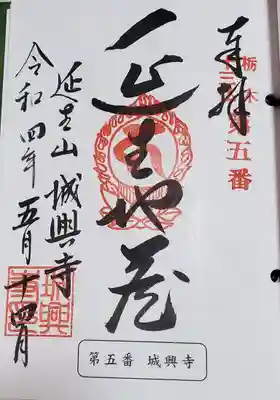 奉拝
栃木
十三仏
第五番
延生地蔵
延生山 城興寺
令和四年五月十四日
第五番 城興寺